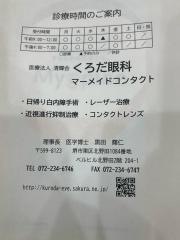 診療時間のご案内
受付時間 月 火 水 木 金 土 日・祝
午前9:00~12:00
医療法人 清輝会 くろだ眼科
マーメイドコンタクト
・日帰り白内障手術 ・レーザー治療
・近視進行抑制治療 ・コンタクトレンズ
理事長 医学博士 黒田 輝仁
〒599-8123 堺市東区北野田1084番地
ベルヒル北野田2階 204-1
TEL 072-234-6746 FAX 072-234-6747
http://kuroda-eye.sakura.ne.jp/